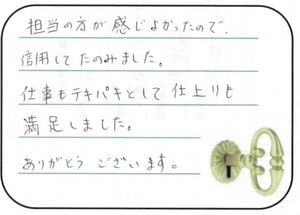 担当の方が感じよかったので、
信用してたのみました。
仕事もテキパキとして仕上りも
満足しました。
ありがとうございます。